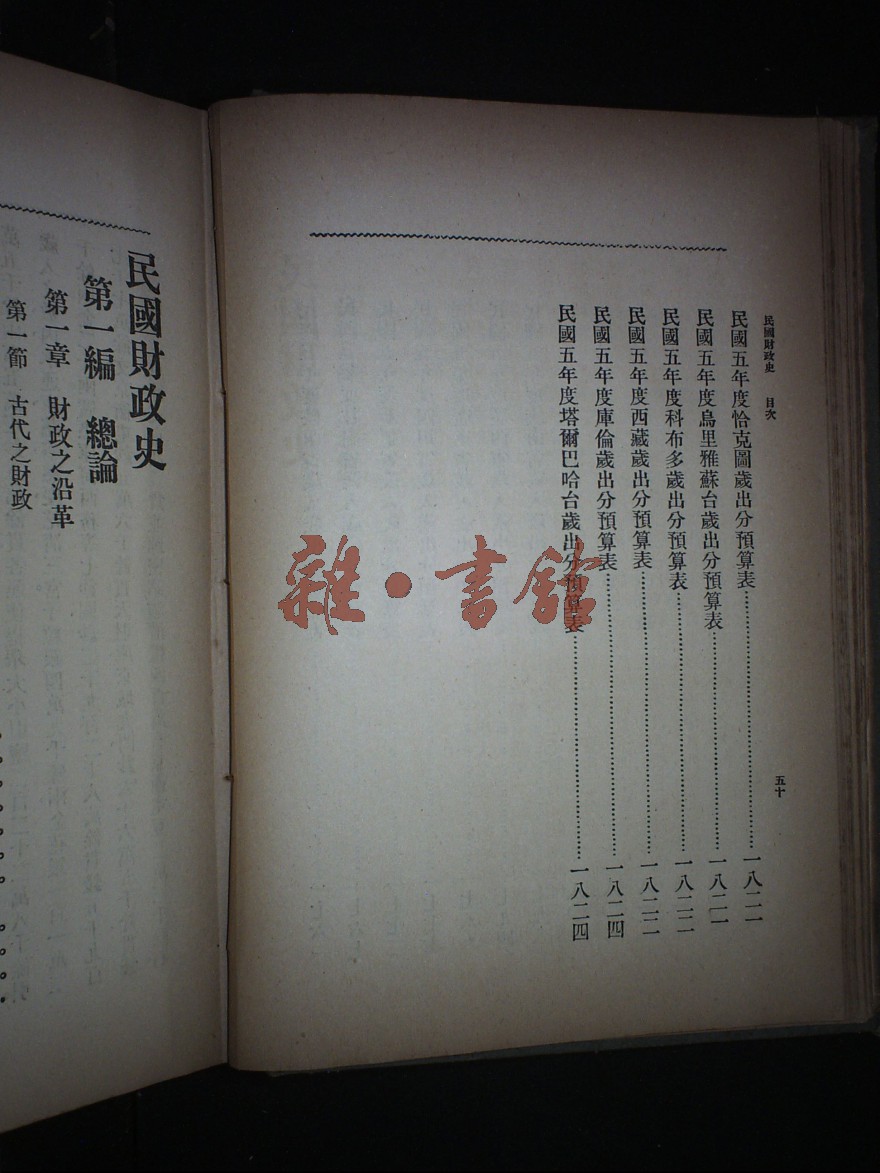 民國財政史 目次 五十
民國五年度恰克圖歲出分預算表……一八二一
民國五年度烏里雅蘇台歲出分預算表……一八二一
民國五年度科布多歲出分預算表……一八二二
民國五年度西藏歲出分預算表……一八二二
民國五年度庫倫歲出分預算表……一八二四
民國五年度塔爾巴哈台歲出分預算表……一八二四
民國財政史
第一編 總論
第一章 財政之沿革
第一節 古代之財政
雜·書館